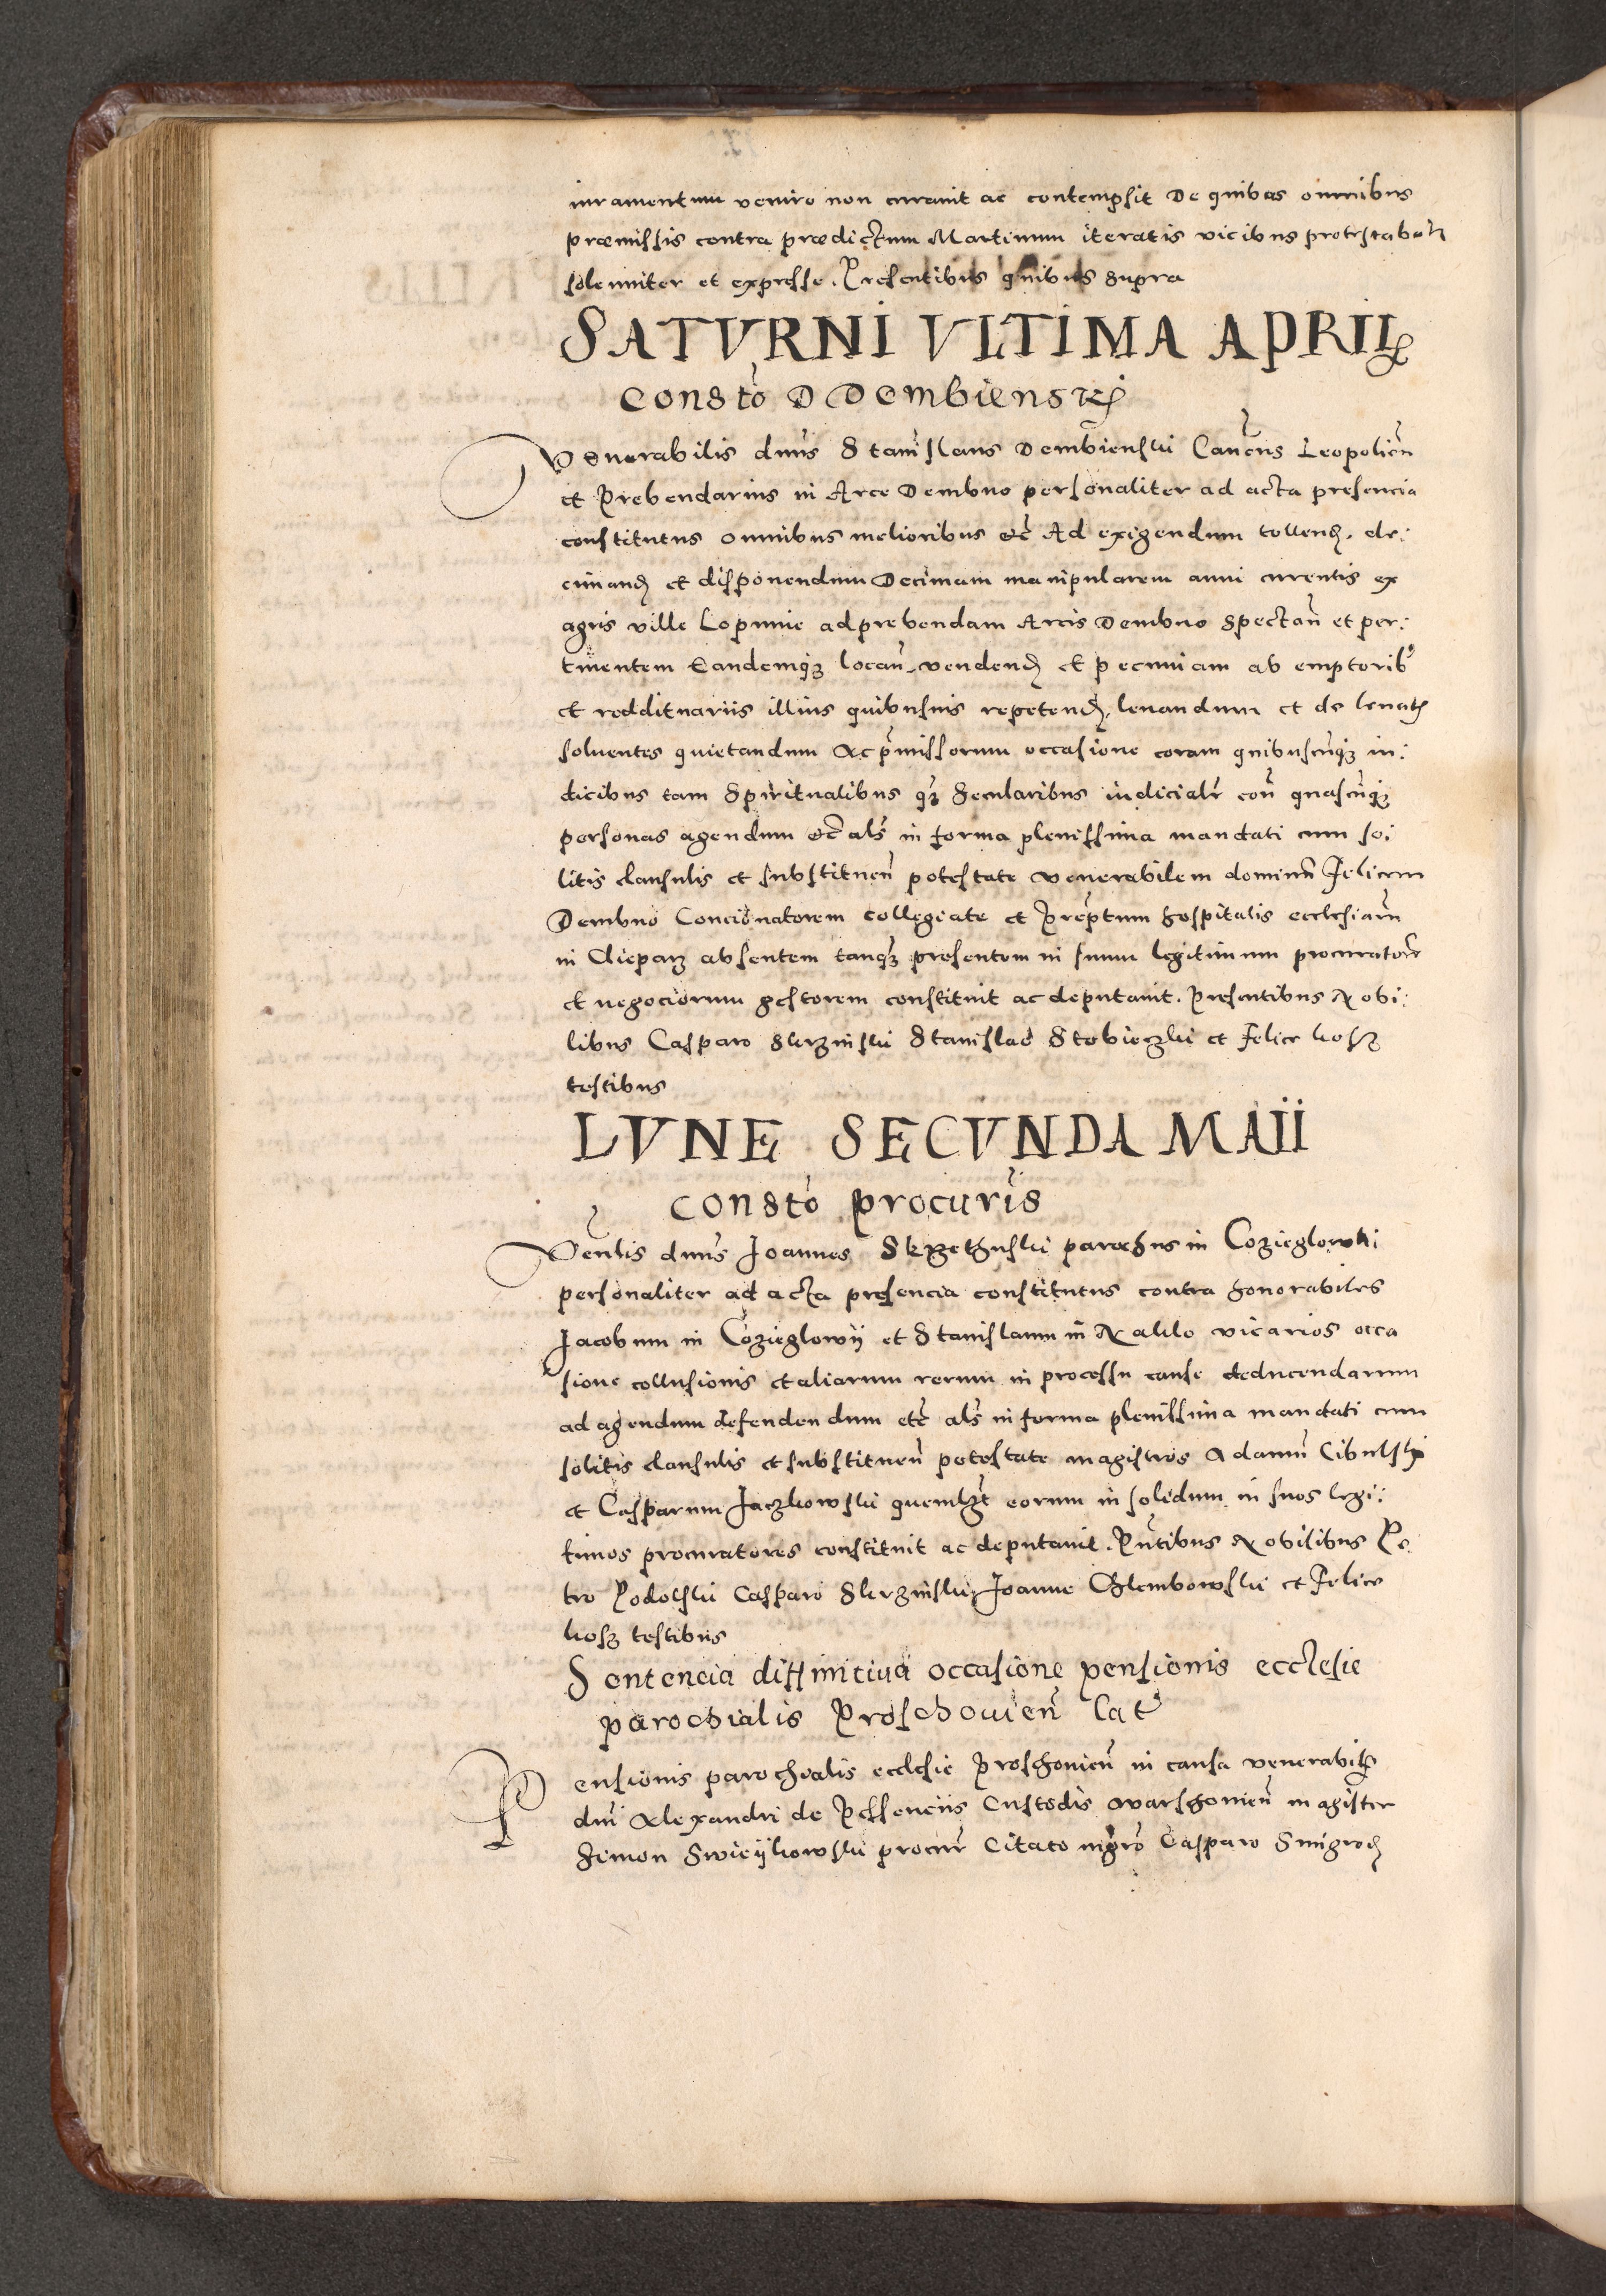 iuramentum venire non curauit ac contempsit De quibus omnibus
præmissis contra prædictum Martinum iteratis vicibus protestabatur
solenniter et expresse. Presentibus quibus supra
SATVRNI VLTIMA APRILIS
Consto D Dembienskj
Venerabilis dnus Stanislaus Dembienski Canens Leopolien
et Prebendarius in Arce Dembno personaliter ad acta presencia
constitutus omnibus melioribus etc Ad exigendum tollend. de:
cimand et disponendum Decimam manipularem anni currentis ex
agris ville Lopunie ad prebendam Arcis Dembno spectan et per:
tinentem Eandemque locan. vendend et pecuniam ab emptorib
et reddituariis illius quibusuis repetend. leuandum et de leuatis
soluentes quietandum Ac pmissorum occasione coram quibuscunq iu:
dicibus tam spiritualibus q secularibus iudicialr con quascunq
personas agendum etc als in forma plenissima mandati cum so:
litis clausulis et substituen potestate venerabilem dominu Felicem
Dembno Concionatorem collegiate et Preptum hospitalis ecclesiarum
in absentem tanq presentem in suum legitimum procuratore
et negociorum gestorem constituit ac deputauit. Presentibus Nobi:
libus Casparo Skrzinski Stanislao Stobieczki et Felice kosz
testibus
LVNE SECVNDA MAII
Consto procuris
Venlis dnus Joannes Skrzethuski parochus in Cozieglowki
personaliter ad acta presencia constitutus contra honorabiles
Jacobum in Cozieglowij et Stanislaum in vicarios occa
sione collusionis et aliarum rerum in processu cause deducendarum
ad agendum defendendum etc als in forma plenissima mandati cum
solitis clausulis et substituen potestate magistros Adamu Cibulski
et Casparum Jaczkowski quemlzt eorum in solidum in suos legi:
timos procuratores constituit ac deputauit. Pntibus Nobilibus Pe
tro Podolski Casparo Skrzinski Joanne Glembowski et Felice
kosz testibus
Sentencia diffinitiua occasione pensionis ecclesie
parochialis Proschouien lat
Pensionis parochialis ecclesie Proshouien in causa venerabilis
dni Alexandri de Pessenciis Custodis warshouien magister
Simon Swieijkowski procur Citato mgro Casparo